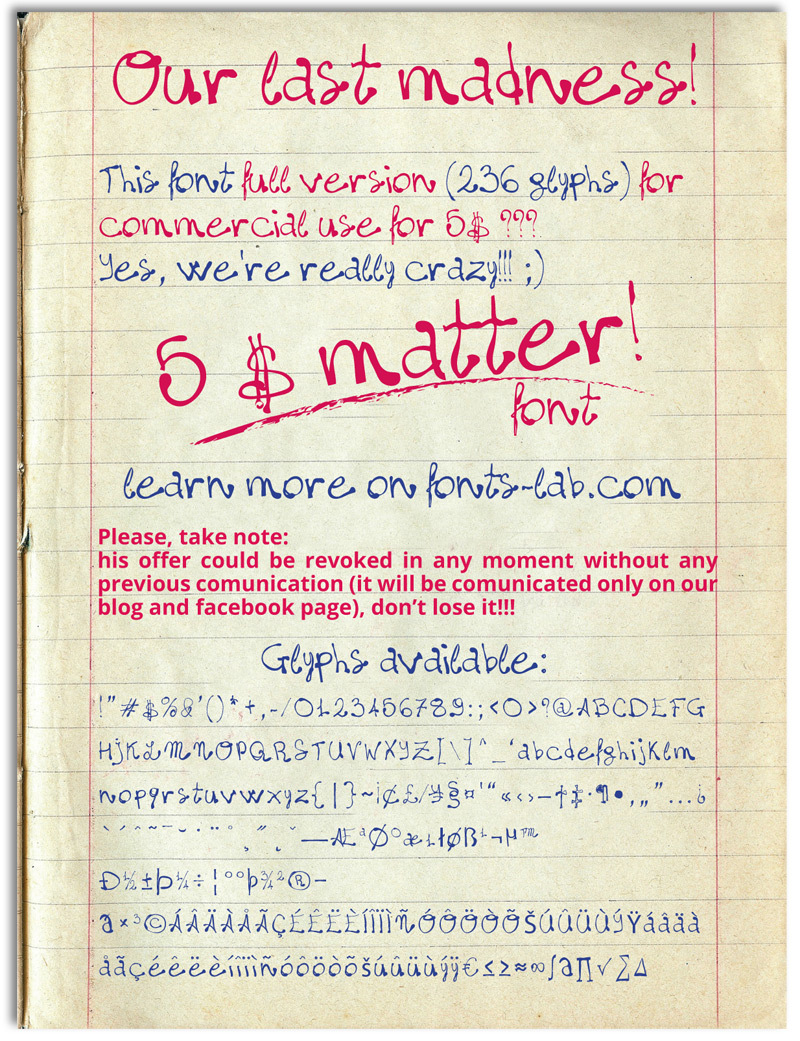 Our last madness!
This font full version (236 glyphs) for
commercial use for 5$ ???
Yes, we're really crazy!!! ;)
5 $ matter!
font
learn more on fonts-lab.com
Please, take note:
his offer could be revoked in any moment without any
previous comunication (it will be comunicated only on our
blog and facebook page), don’t lose it!!!
Glyphs available:
!"#$%&'()*+,-/0123456789:;<0>?@ABCDEFG
HJKLMNOPQRSTUVWXYZ[\]^_‘abcdefghijklm
nopqrstuvwxyz{|}~¡¢£/¥§¤'“«‹›–†‡·¶•‚„”…¿
`´ˆ˜¯˘˙¨°¸˝˛ˇ—ÆªØºæıłøß¹¬µ™
Ð½±Þ¼÷¦°°þ¾²®−
a׳©ÁÂÄÀÅÃÇÉÊËÈÍÎÏÌÑÓÔÖÒÕŠÚÛÜÙÝŸáâäà
åãçéêëèíîïìñóôöòõšúûüùýÿ€≤≥≈∞∫∂∏√∑∆